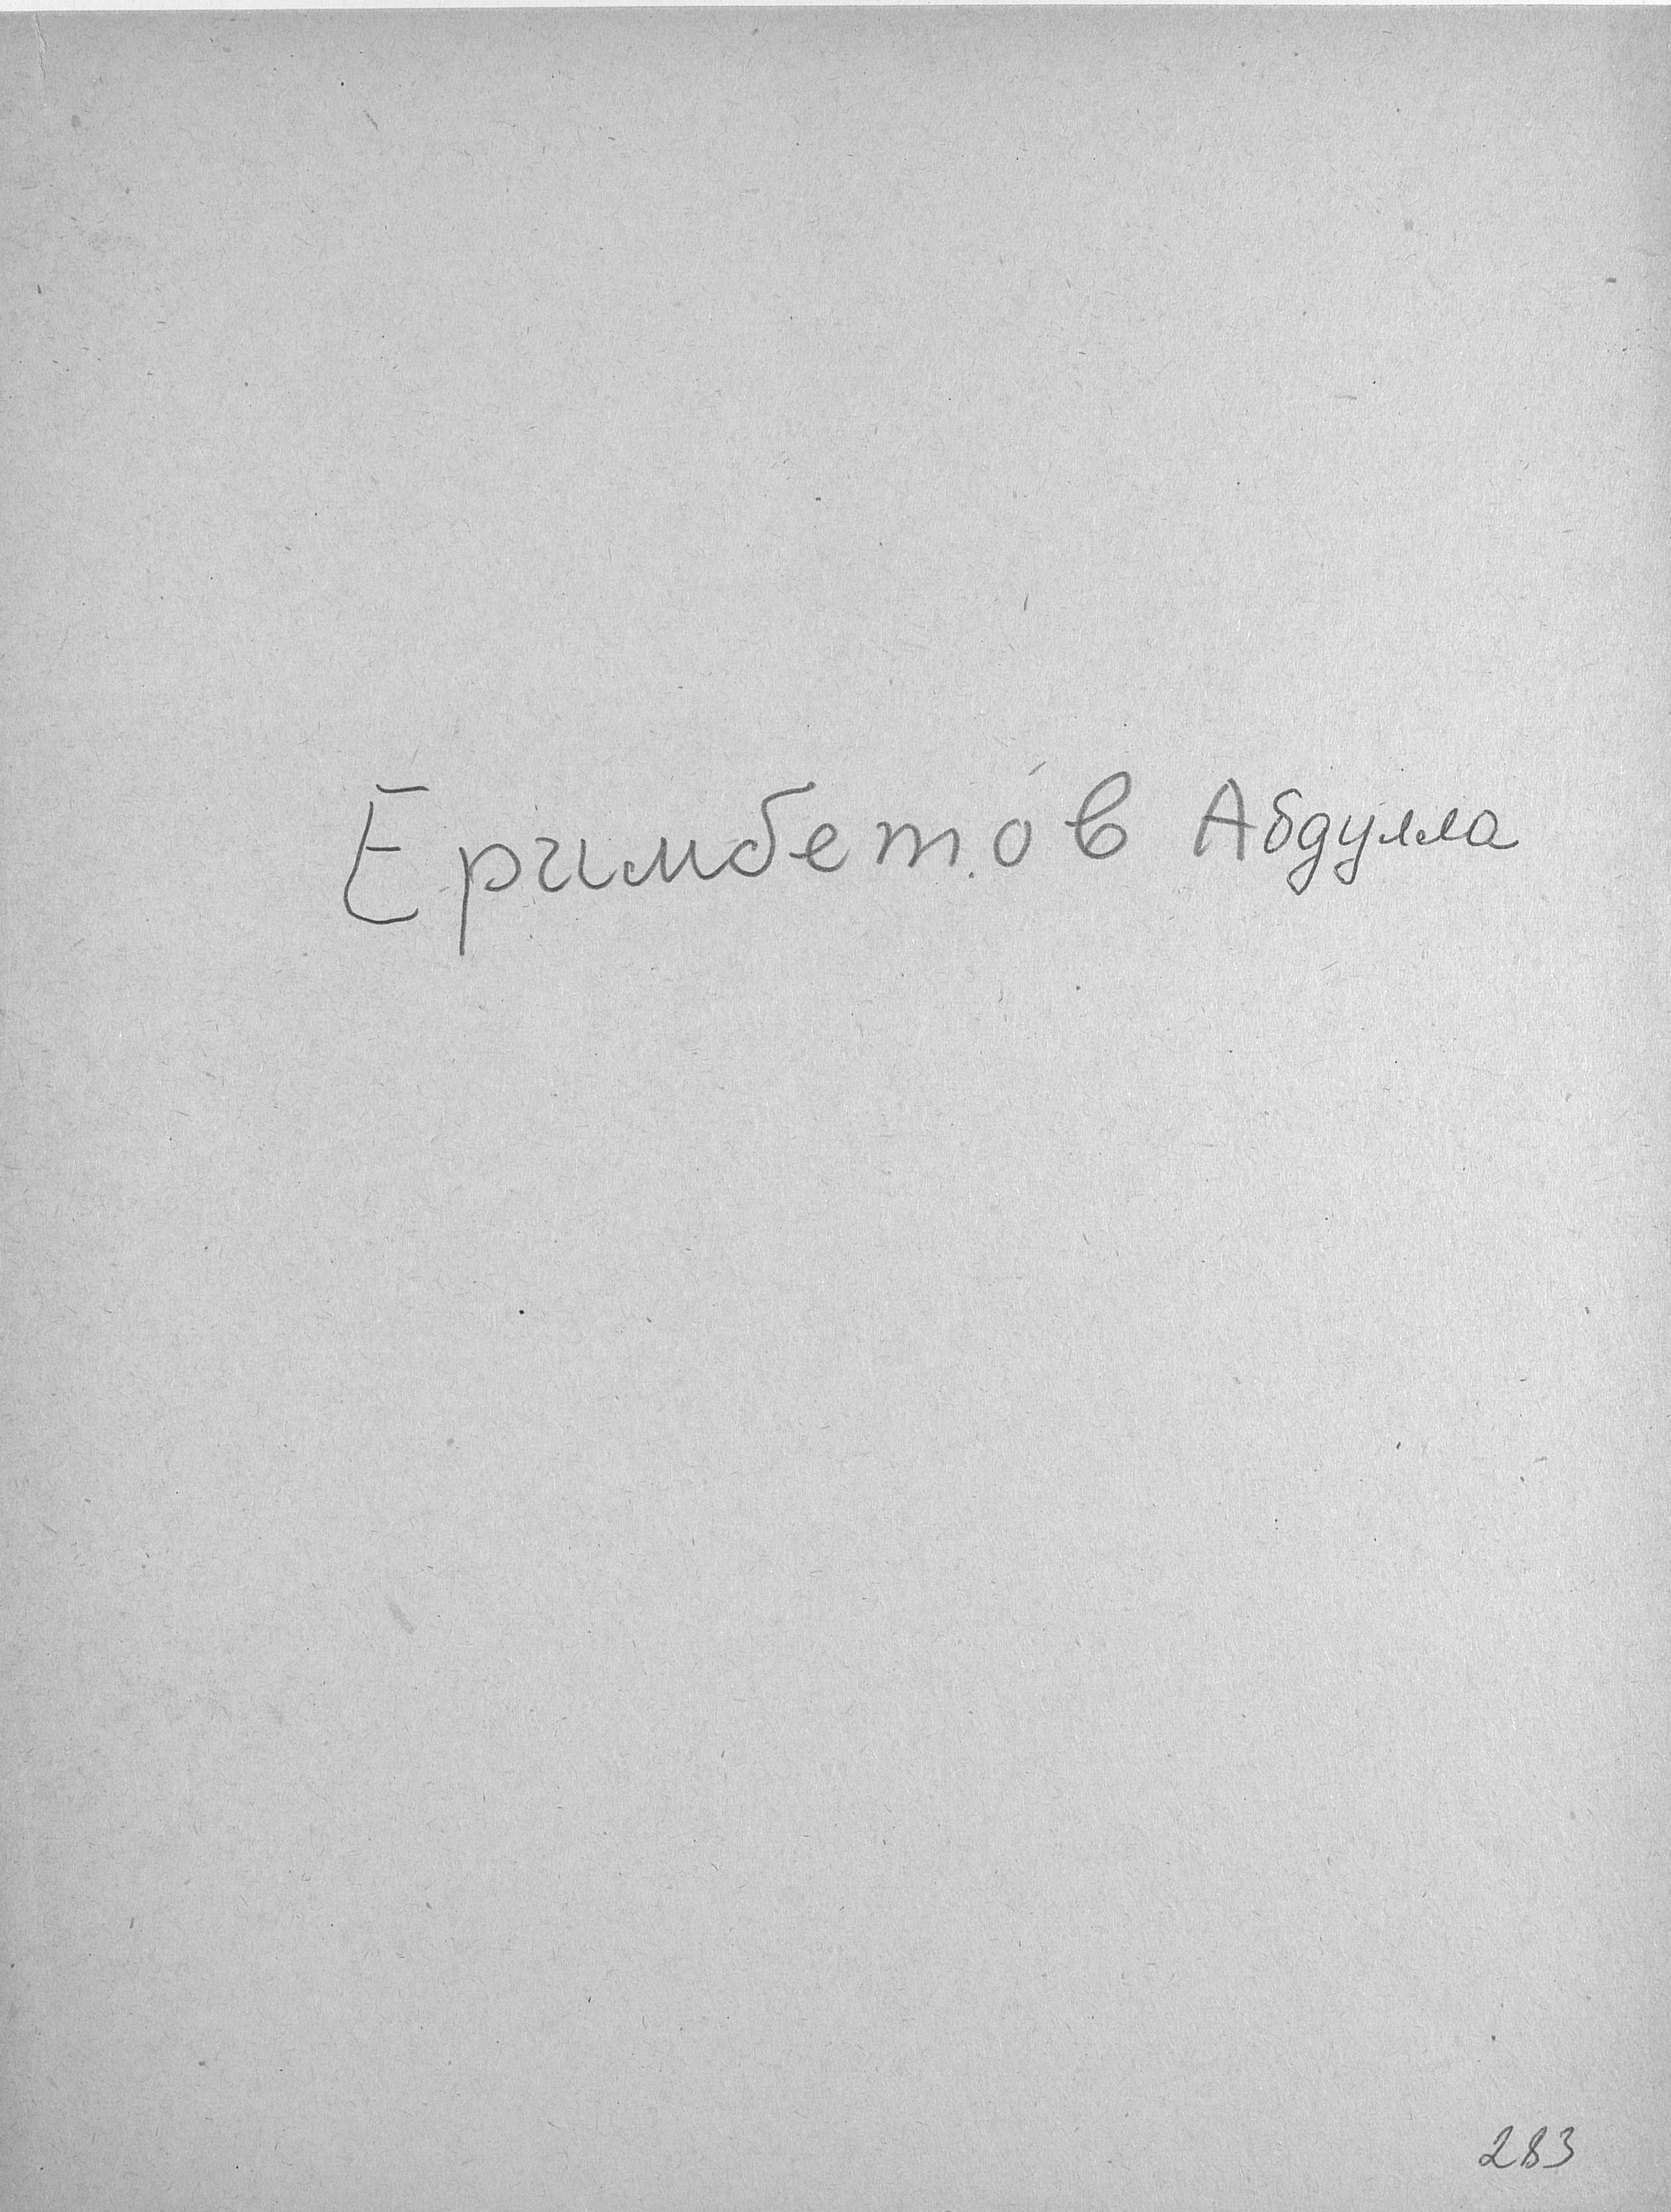 Еримбетов Абдулла
283